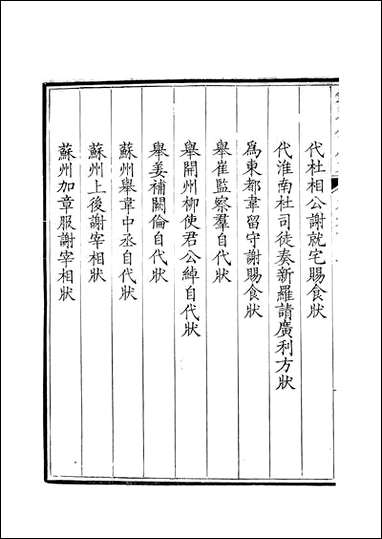 代杜相公謝就宅賜食狀
代淮南杜司徒奏新羅請廣利方狀
為東都韋留守謝賜食狀
舉崔監察羣自代狀
舉開州柳使君公綽自代狀
舉姜補闕倫自代狀
蘇州舉韋中丞自代狀
蘇州上後謝宰相狀
蘇州加章服謝宰相狀